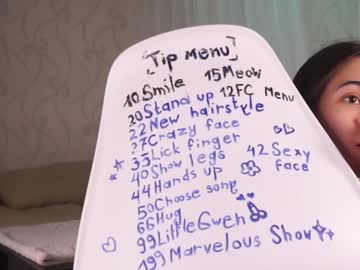 Tip Menu
10 Smile 15 Meow
20 Stand up 12 FC Menu
22 New hairstyle
27 Crazy face
33 Lick finger
40 Show legs 42 Sexy face
44 Hands up
50 Choose song
66 Hug
99 Little Gweh
199 Marvelous Show